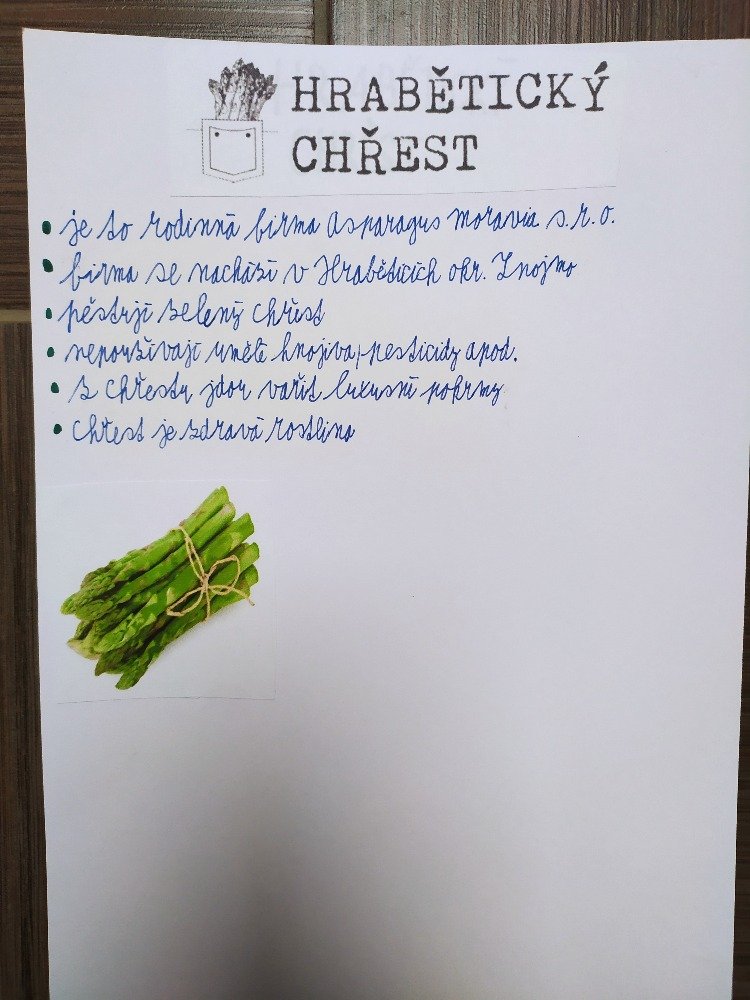 HRABĚTICKÝ
CHŘEST
• je to rodinná firma Asparagus Moravia s.r.o.
• firma se nachází v Hraběticích okr. Znojmo
• pěstují zelený chřest
• nepoužívají umělé hnojiva, pesticidy apod.
• z chřestu jdou vařit luxusní pokrmy
• chřest je zdravá rostlina